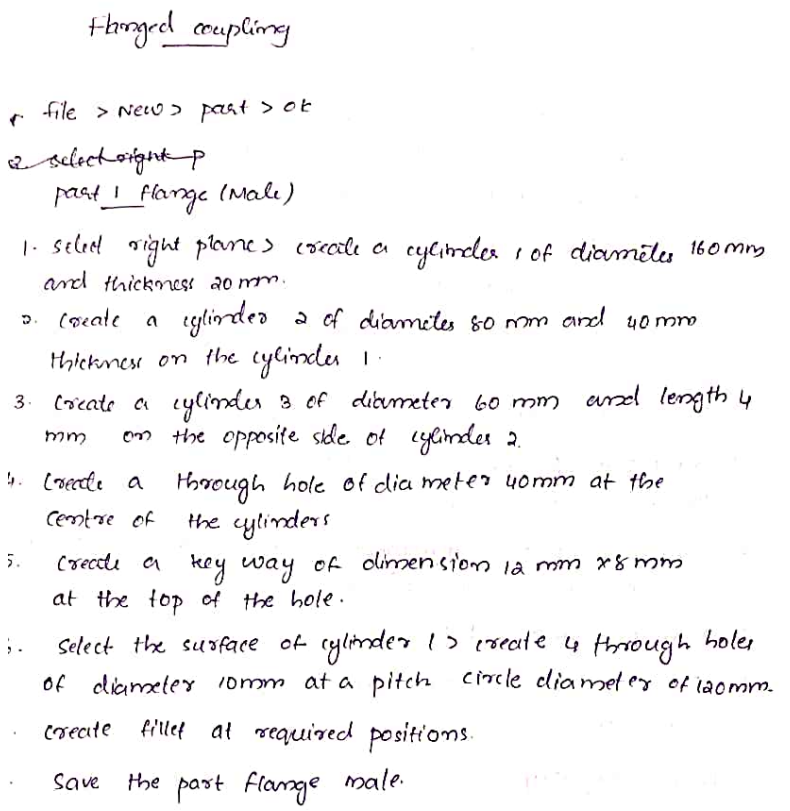 Flanged coupling
1. file > New > part > ok
2 select right p
part 1 flange (Male)
1. select right plane > create a cylinder 1 of diameter 160mm
and thickness 20 mm.
2. Create a cylinder 2 of diameter 80 mm and 40 mm
thickness on the cylinder 1.
3. Create a cylinder 3 of diameter 60 mm and length 4
mm on the opposite side of cylinder 2.
4. Create a through hole of dia meter 40mm at the
centre of the cylinders
5. Create a key way of dimension 12 mm x8 mm
at the top of the hole.
. Select the surface of cylinder 1 > create 4 through holes
of diameter 10mm at a pitch circle diameter of 120mm.
. create fillet at required positions.
. Save the part flange male.